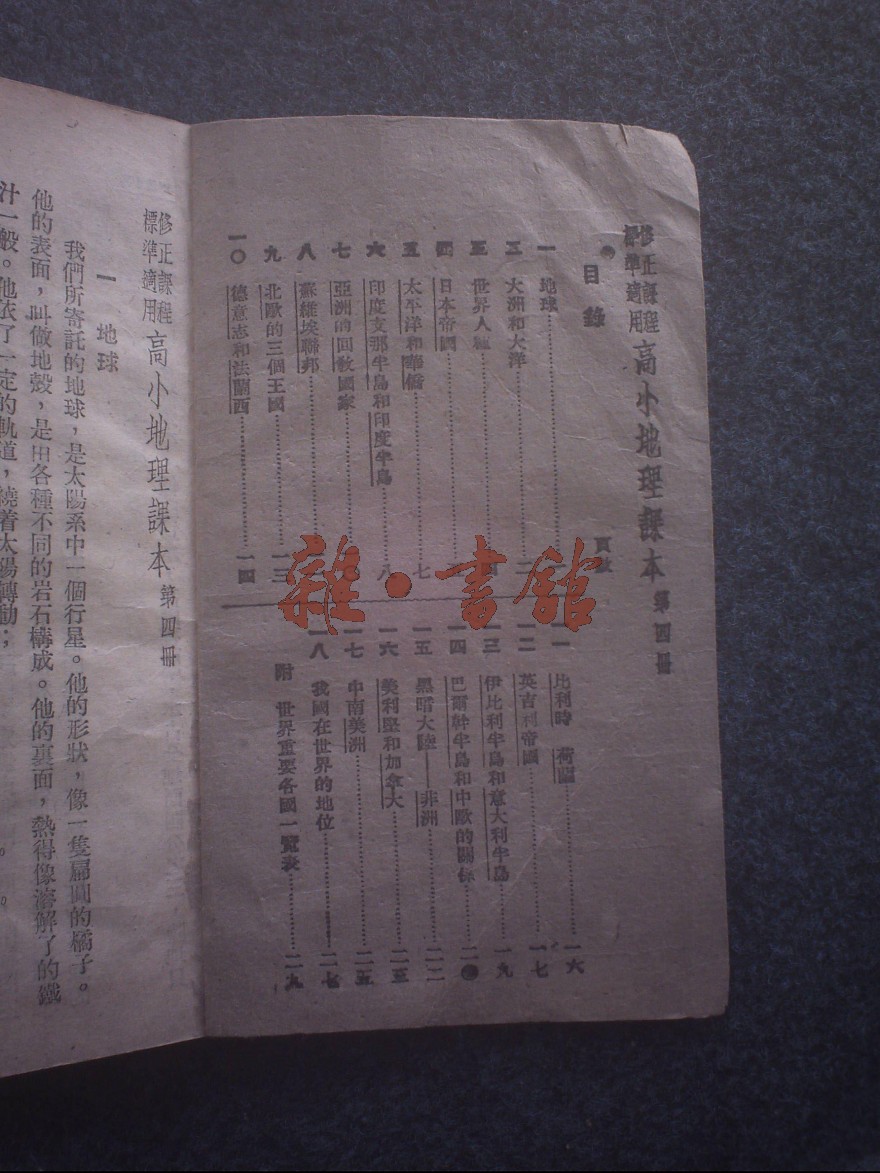 修正課程標準適用 高小地理課本 第四冊
目錄
頁數
一 地球
二 大洲和大洋 二
三 世界人種
四 日本帝國
五 太平洋和華僑 七
六 印度支那半島和印度半島 八
七 亞洲的回教國家
八 蘇維埃聯邦
九 北歐的三個王國 一三
一〇 德意志和法蘭西 一四
一一 比利時 荷蘭 一六
一二 英吉利帝國 一七
一三 伊比利半島和意大利半島 一九
一四 巴爾幹半島和中歐的關係
一五 黑暗大陸——非洲 二二
一六 美利堅和加拿大 二三
一七 中南美洲 二五
一八 我國在世界的地位 二七
附 世界重要各國一覽表 二九
修正課程標準適用 高小地理課本 第四冊
一 地球
我們所寄託的地球,是太陽系中一個行星。他的形狀,像一隻扁圓的橘子。
他的表面,叫做地殼,是由各種不同的岩石構成。他的裏面,熱得像溶解了的鐵
汁一般。他依了一定的軌道,繞着太陽轉動;
雜·書館